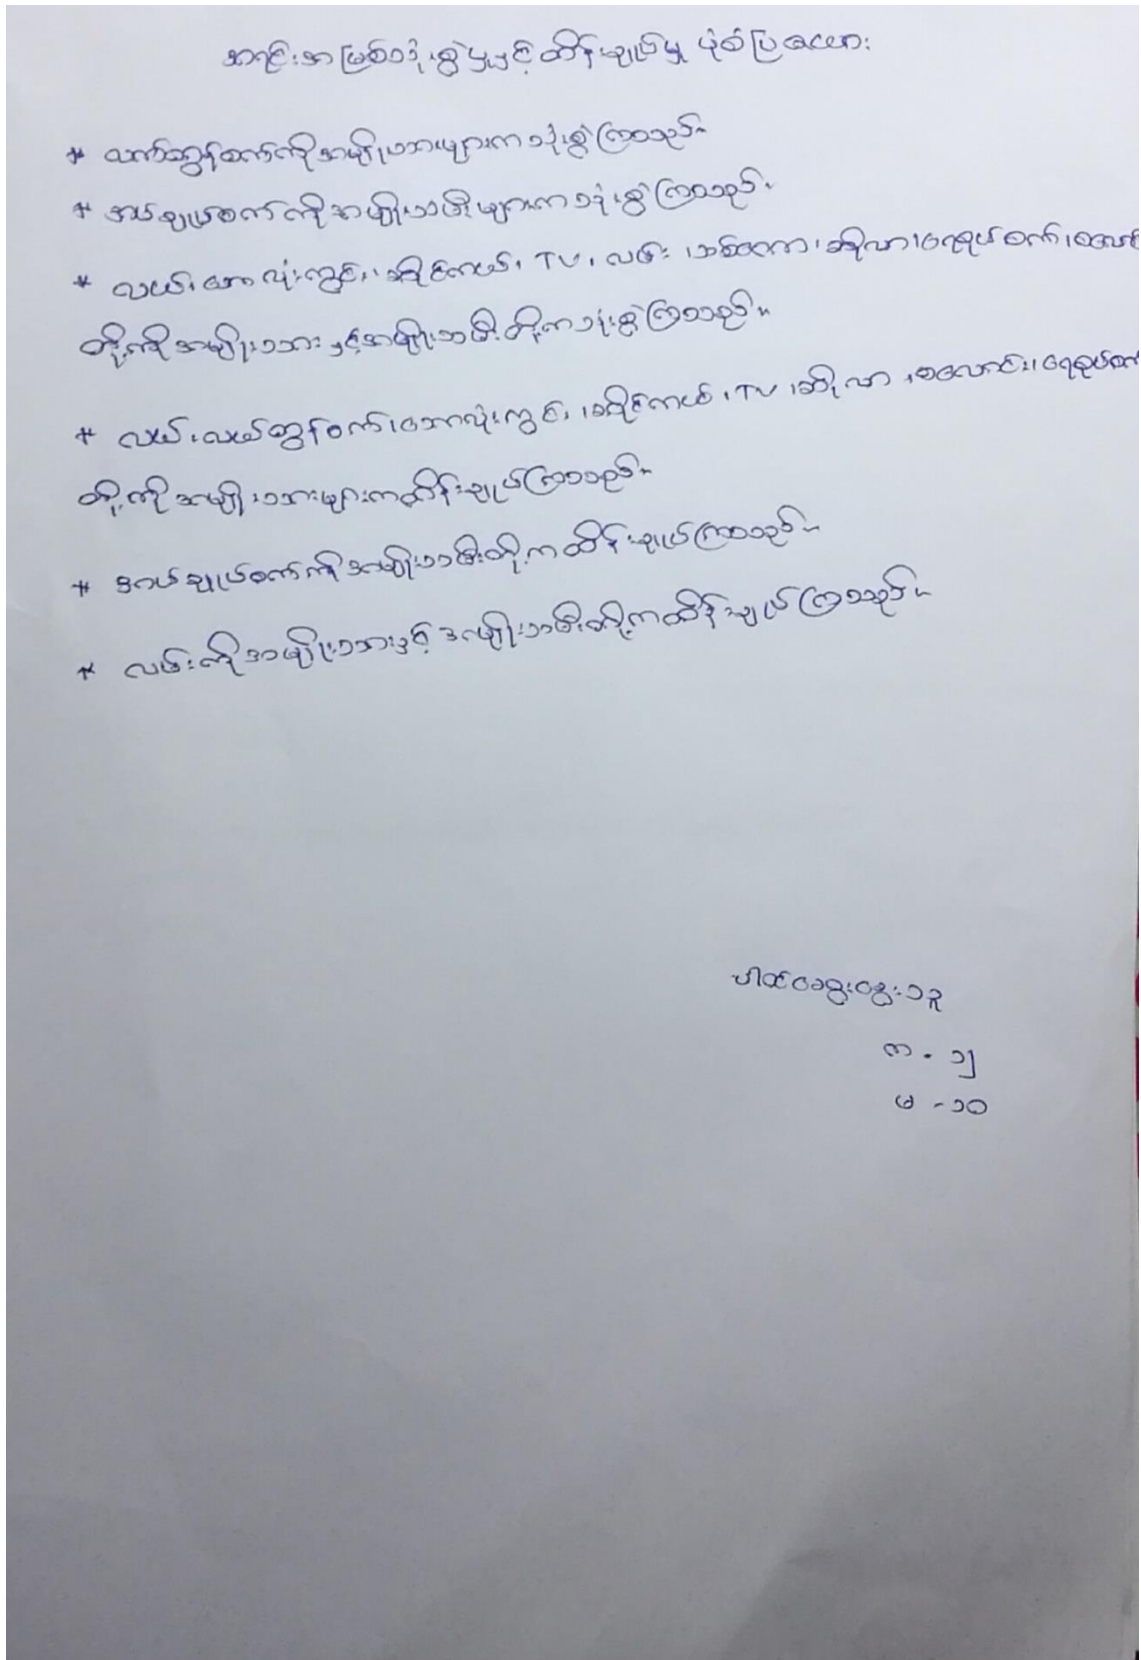 အရင်းအမြစ်သုံးစွဲမှုနှင့်ထိန်းချုပ်မှု ပုံစံပြဇယား
* လက်တွန်စက်ကိုအမျိုးသားများကသုံးစွဲကြသည်။
* အပ်ချုပ်စက်ကိုအမျိုးသမီးများကသုံးစွဲကြသည်။
* လယ်၊ဘောလုံးကွင်း၊ဆိုင်ကယ်၊ TV ၊ လမ်း၊သစ်တော၊ဆိုလာ၊ရေစုပ်စက်၊
တို့ကိုအမျိုးသားနှင့်အမျိုးသမီးတို့ကသုံးစွဲကြသည်။
* လယ်၊လယ်ထွန်စက်၊ဘောလုံးကွင်း၊ဆိုင်ကယ်၊ TV ၊ဆိုလာ၊စလောင်း၊ရေစုပ်စက်
တို့ကိုအမျိုးသားများကထိန်းချုပ်ကြသည်။
* အပ်ချုပ်စက်ကိုအမျိုးသမီးတို့ကထိန်းချုပ်ကြသည်။
* လမ်းကိုအမျိုးသားနှင့်အမျိုးသမီးတို့ကထိန်းချုပ်ကြသည်။
ပါဝင်ဆွေးနွေးသူ
ကျား - ၁၂
မ - ၁၀